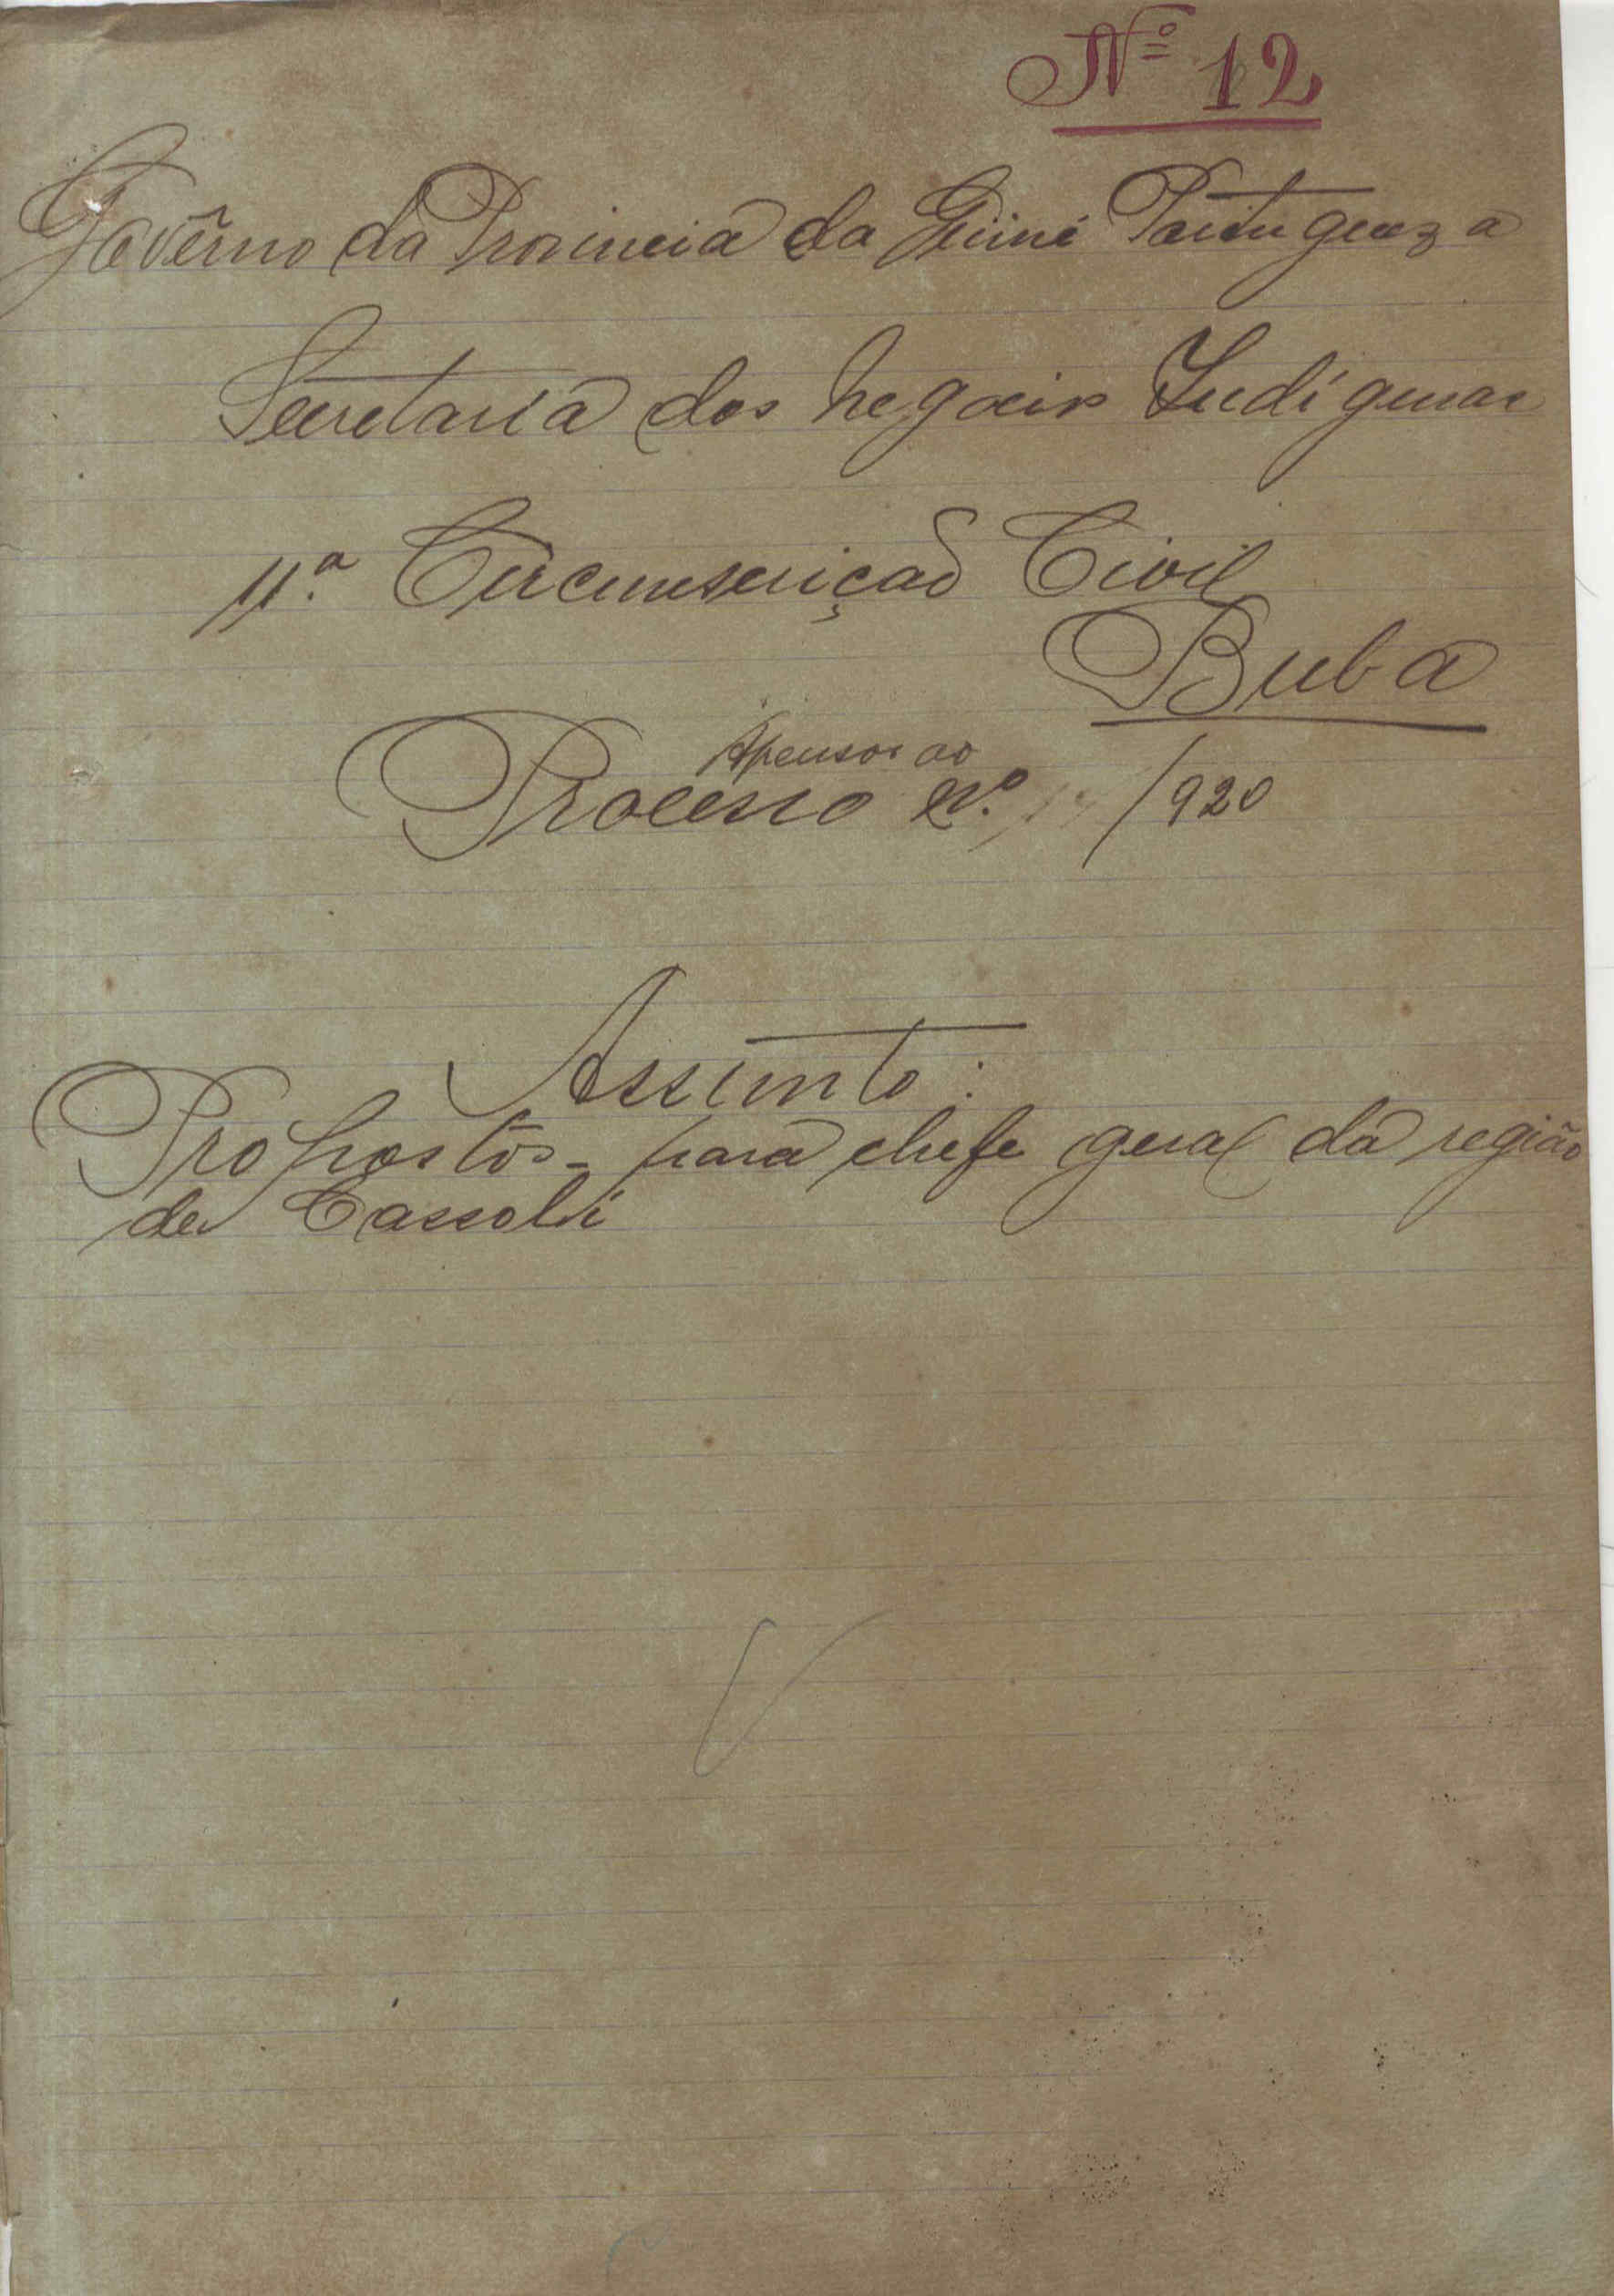 Nº 12
Govêrno da Provincia da Guiné Portugueza
Secretaria dos negocios Indígenas
11.ª Circumscrição Civil
Buba
Apensos ao
Processo Nº. /920
Assunto:
Propostos - para chefe geral da região
de Cassolé